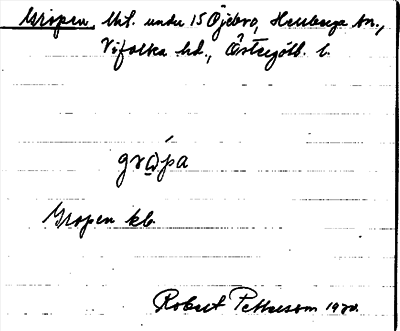 Gropen, Utt. under 15 Öjebro, Herrberga sn.,
Vifolka hd., Östergötl. l.
grọ́pa
Gropen kb.
Robert Pettersson 1930.